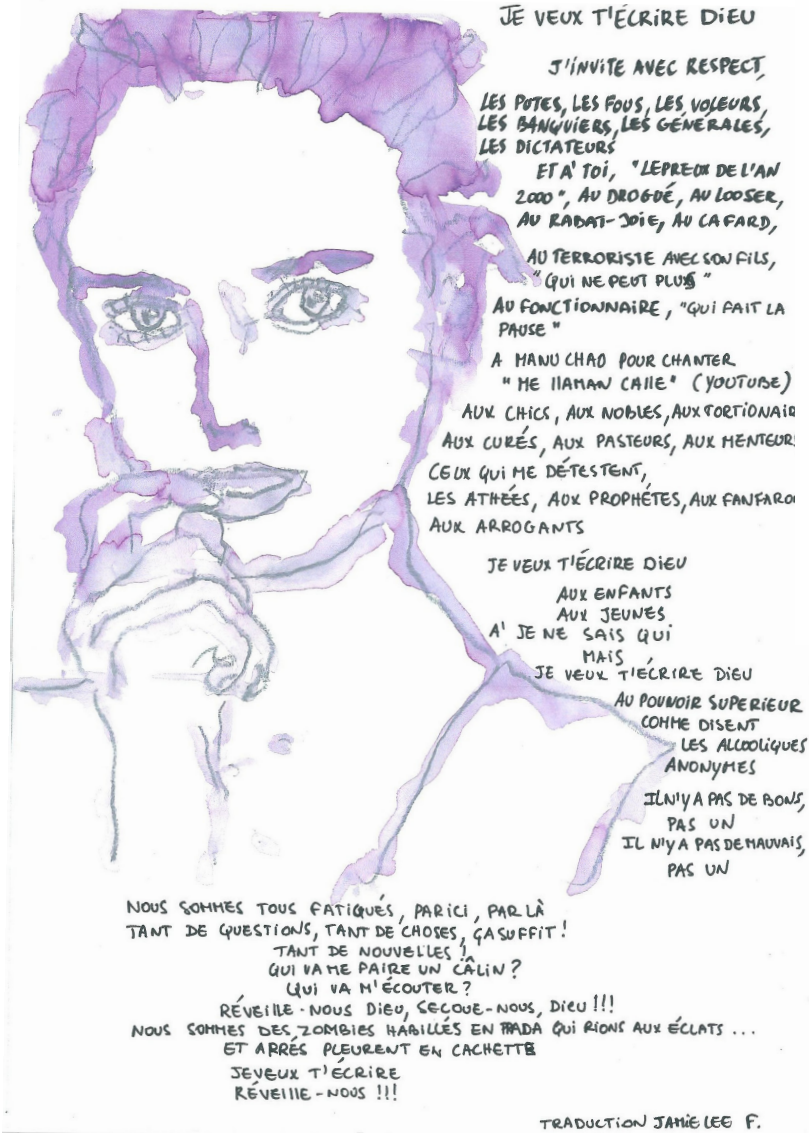 JE VEUX T'ÉCRIRE DIEU
J'INVITE AVEC RESPECT,
LES PUTES, LES FOUS, LES VOLEURS,
LES BANQUIERS, LES GÉNÉRALES,
LES DICTATEURS
ET A' TOI, "LEPREUX DE L'AN
2000", AU DROGUÉ, AU LOOSER,
AU RABAT-JOIE, AU CAFARD,
AU TERRORISTE AVEC SON FILS,
"QUI NE PEUT PLUS"
AU FONCTIONNAIRE, "QUI FAIT LA
PAUSE"
A MANU CHAO POUR CHANTER
"ME llAMAN CAllE" (YOUTUBE)
AUX CHICS, AUX NOBLES, AUX TORTIONAIR
AUX CURÉS, AUX PASTEURS, AUX MENTEUR
CEUX QUI ME DÉTESTENT,
LES ATHÉES, AUX PROPHÉTES, AUX FANFARO
AUX ARROGANTS
JE VEUX T'ÉCRIRE DIEU
AUX ENFANTS
AUX JEUNES
A' JE NE SAIS QUI
MAIS
JE VEUX T'ÉCRIRE DIEU
AU POUVOIR SUPERIEUR
COMME DISENT
LES ALCOOLIQUES
ANONYMES
IL N'Y A PAS DE BONS,
PAS UN
IL N'Y A PAS DE MAUVAIS,
PAS UN
NOUS SOMMES TOUS FATIGUÉS, PAR ICI, PAR LÀ
TANT DE QUESTIONS, TANT DE CHOSES, ÇA SUFFIT!
TANT DE NOUVELLES!
QUI VA ME FAIRE UN CÂLIN?
QUI VA M'ÉCOUTER?
RÉVEILLE-NOUS DIEU, SECOUE-NOUS, DIEU!!!
NOUS SOMMES DES ZOMBIES HABILLÉS EN PRADA QUI RIONS AUX ÉCLATS...
ET ARRÉS PLEURENT EN CACHETTE
JE VEUX T'ÉCRIRE
RÉVEILLE-NOUS!!!
TRADUCTION JAMIE LEE F.